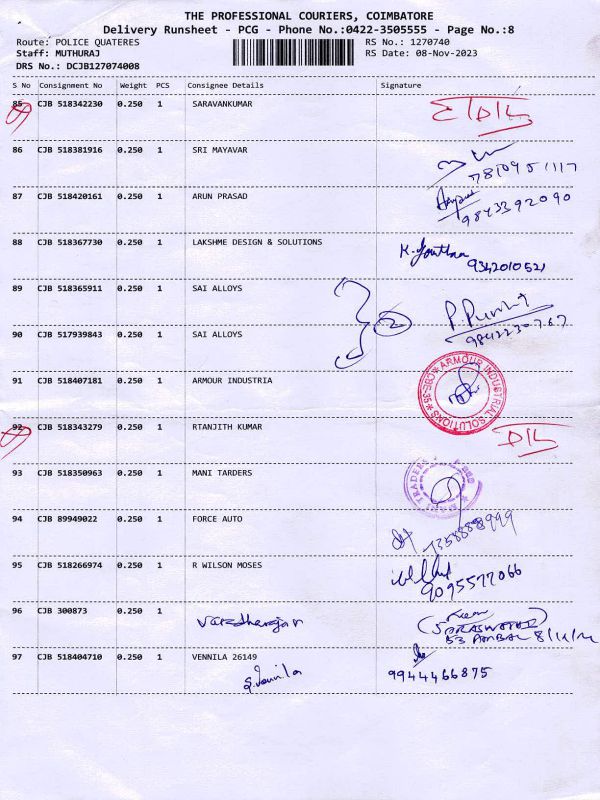 THE PROFESSIONAL COURIERS, COIMBATORE
Delivery Runsheet - PCG - Phone No.:0422-3505555 - Page No.:8
Route: POLICE QUATERES RS No.: 1270740
Staff: MUTHURAJ RS Date: 08-Nov-2023
DRS No.: DCJB127074008
S No Consignment No Weight PCS Consignee Details Signature
85 CJB 518342230 0.250 1 SARAVANKUMAR
86 CJB 518381916 0.250 1 SRI MAYAVAR
7810951117
87 CJB 518420161 0.250 1 ARUN PRASAD
9843392090
88 CJB 518367730 0.250 1 LAKSHME DESIGN & SOLUTIONS
9342010521
89 CJB 518365911 0.250 1 SAI ALLOYS
2
90 CJB 517939843 0.250 1 SAI ALLOYS
9842230767
91 CJB 518407181 0.250 1 ARMOUR INDUSTRIA
ARMOUR INDUSTRIAL SOLUTIONS * CBE-35 *
92 CJB 518343279 0.250 1 RTANJITH KUMAR
D/L
93 CJB 518350963 0.250 1 MANI TARDERS
MANI TRADERS
94 CJB 89949022 0.250 1 FORCE AUTO
7358888999
95 CJB 518266974 0.250 1 R WILSON MOSES
9095577066
96 CJB 300873 0.250 1
Varadharajan
97 CJB 518404710 0.250 1 VENNILA 26149
S.Vennila 9944466875